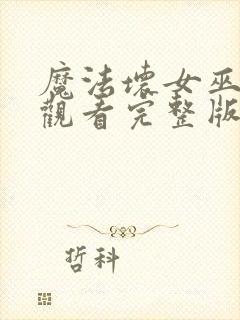 魔法壞女巫
觀看完整版
哲科